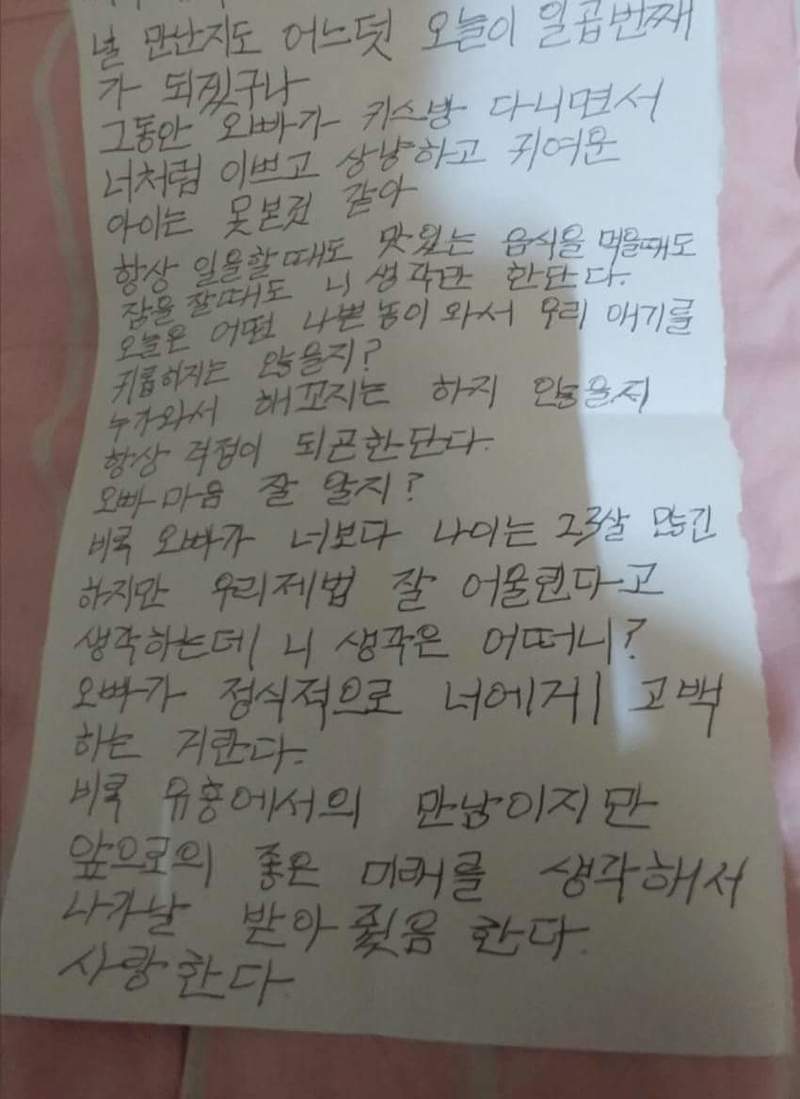 널 만난지도 어느덧 오늘이 일곱번째
가 되겠구나
그동안 오빠가 키스방 다니면서
너처럼 이쁘고 상냥하고 귀여운
아이는 못본것 같아
항상 일을할때도 맛있는 음식을 먹을때도
잠을 잘때도 니 생각만 한단다.
오늘은 어떤 나쁜놈이 와서 우리 애기를
귀롭히지는 않을지?
누가와서 해꼬지는 하지 않을지
항상 걱정이 되곤한단다.
오빠 마음 잘 알지?
비록 오빠가 너보다 나이는 23살 많긴
하지만 우리제법 잘 어울린다고
생각하는데 니 생각은 어떠니?
오빠가 정식적으로 너에게 고백
하는 거란다.
비록 유흥에서의 만남이지만
앞으로의 좋은 미래를 생각해서
나가날 받아줫음 한다.
사랑한다